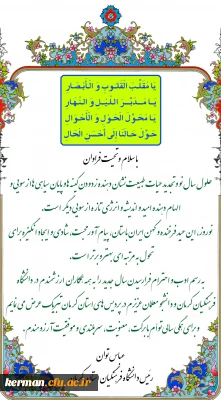 یا مقلب القلوب و الابصار
یا مدبر اللیل و النهار
یا محول الحول و الاحوال
حول حالنا الی احسن الحال
با سلام و تحیت فراوان
حلول سال نو و تجدید حیات طبیعت نشان دهنده زدودن کینه ها و پایان سیاهی ها از سویی و
الهام دهنده امید و اندیشه و انرژی تازه از سویی دیگر است.
نوروز، این عید فرخنده و کهن ایران باستان، پیام آور محبت، شادی و ایجاد انگیزه برای
تحول به مرتبه ای بهتر و برتر است.
به رسم ادب و احترام فرا رسیدن سال جدید را به همه همکاران ارزشمندم در دانشگاه
فرهنگیان کرمان و دانشجو معلمان عزیزم در پردیس های استان کرمان تبریک عرض می نمایم
و برای همگی سالی توام با برکت، معنویت، سربلندی و موفقیت آرزومندم.
عباس توان
رئیس دانشگاه فرهنگیان استان کرمان
kerman.cfu.ac.ir